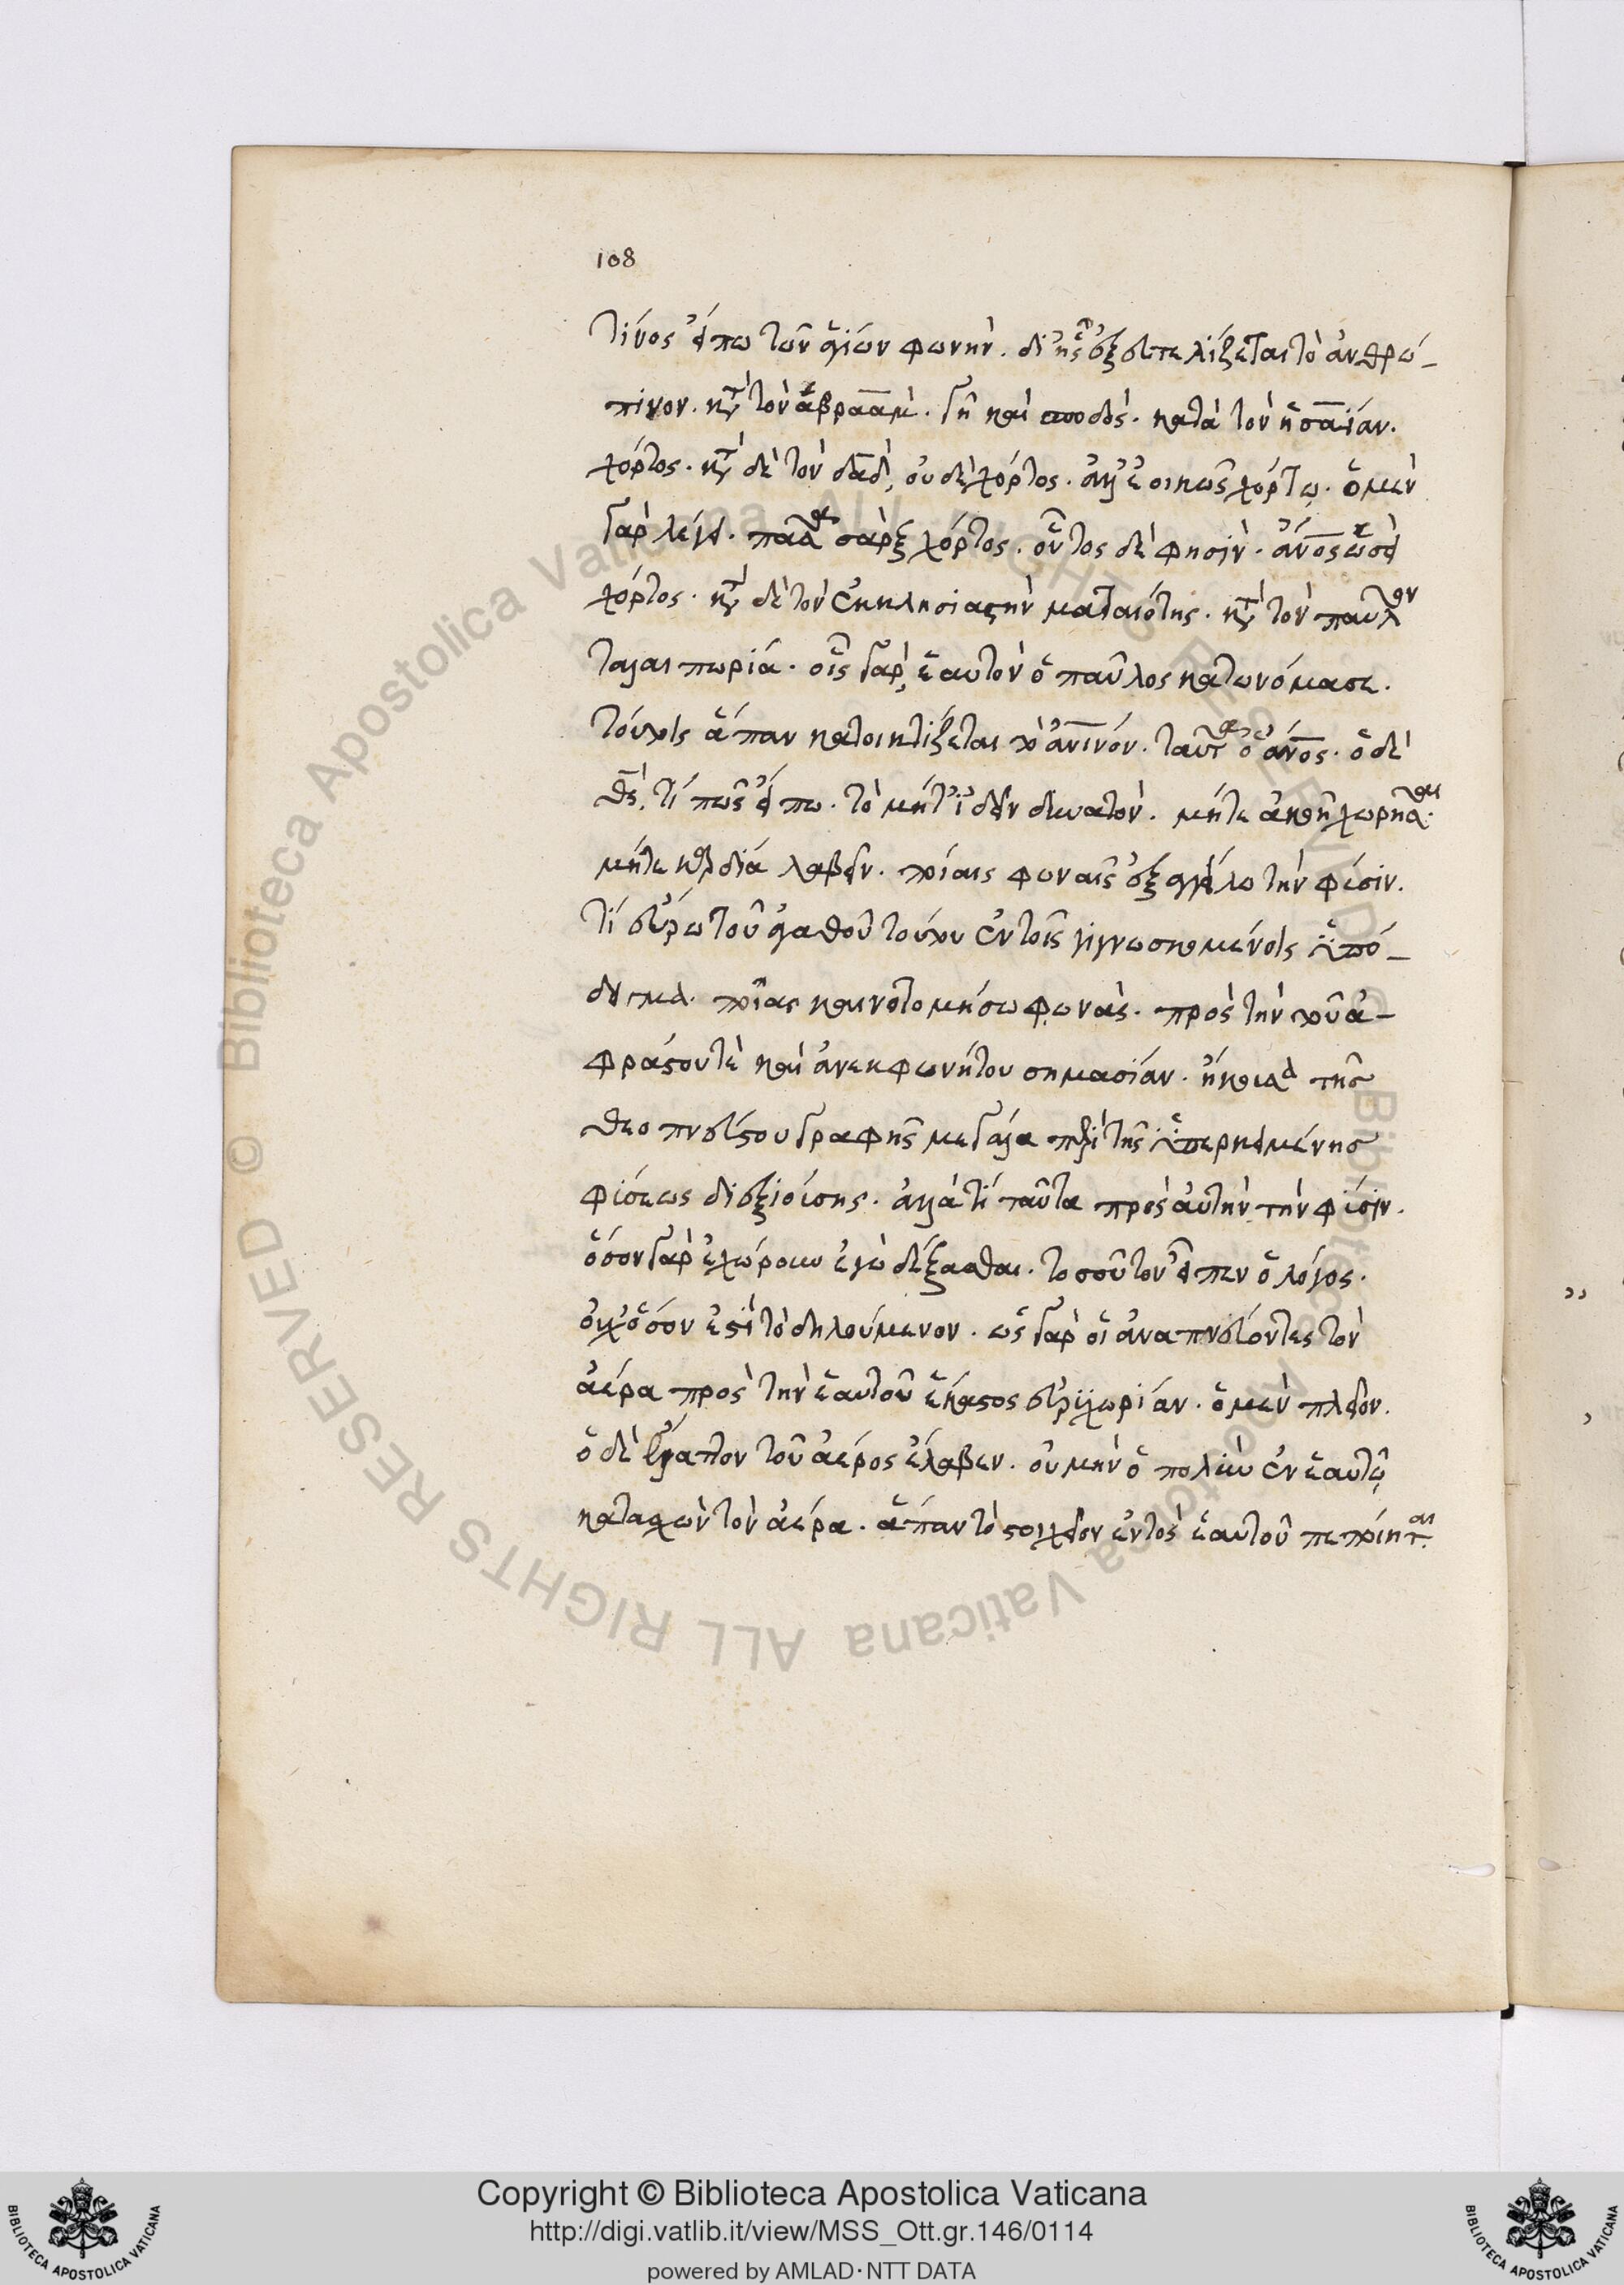 108
τίνος εἴπω τῶν ἁγίων φωνὴν. δι' ἧς ἐξευτελίζεται τὸ ἀνθρώ-
πινον. κατὰ τὸν ἀβραὰμ. γῆ καὶ σποδὸς. κατὰ τὸν ἡσαΐαν.
χόρτος. κατὰ δὲ τὸν δαδ, οὐδὲ χόρτος. ἀλλ' ἐοικὼς χόρτῳ. ὁ μὲν
γὰρ λέγει. πᾶσα σὰρξ χόρτος. οὗτος δὲ φησὶν. ἄνος ὡσεὶ
χόρτος. κατὰ δὲ τὸν ἐκκλησιαστὴν ματαιότης. κατὰ τὸν παῦλον
ταλαιπωρία. οἷς γὰρ ἑαυτὸν ὁ παῦλος κατωνόμασε.
τούτοις ἅπαν κατοικτίζεται τὸ ἀνινόν. ταῦτα ὁ ἄνος. ὁ δὲ
θς, τί πῶς εἴπω. τὸ μήτ' ἰδεῖν δυνατὸν. μήτε ἀκοῇ χωρῆσαι.
μήτε καρδία λαβεῖν. ποίαις φωναῖς ἐξαγγείλω τὴν φύσιν.
τί εὕρω τοῦ ἀγαθοῦ τούτου ἐν τοῖς γιγνωσκομένοις ὑπό-
δειγμα. ποίας καινοτομήσω φωνὰς. πρὸς τὴν τοῦ ἀ-
φράστου τὲ καὶ ἀνεκφωνήτου σημασίαν. ἤκουσα τῆς
θεοπνεύστου γραφῆς μεγάλα περὶ τῆς ὑπερκειμένης
φύσεως διεξιούσης. ἀλλὰ τί ταῦτα πρὸς αὐτὴν τὴν φύσιν.
ὅσον γὰρ ἐχώρουν ἐγὼ δέξασθαι. τοσοῦτον εἶπεν ὁ λόγος.
οὐχ' ὅσον ἐστὶ τὸ δηλούμενον. ὡς γὰρ οἱ ἀναπνέοντες τὸν
ἀέρα πρὸς τὴν ἑαυτοῦ ἕκαστος εὐρυχωρίαν. ὁ μὲν πλεῖον.
ὁ δὲ ἔλαττον τοῦ ἀέρος ἔλαβεν. οὐ μὴν ὁ πολὺν ἐν ἑαυτῷ
κατασχὼν τὸν ἀέρα. ἅπαν τὸ στοιχεῖον ἐντὸς ἑαυτοῦ πεποίηται.
Copyright © Biblioteca Apostolica Vaticana
http://digi.vatlib.it/view/MSS_Ott.gr.146/0114
powered by AMLAD·NTT DATA
BIBLIOTECA APOSTOLICA VATICANA
BIBLIOTECA APOSTOLICA VATICANA
© Biblioteca Apostolica Vaticana ALL RIGHTS RESERVED
© Biblioteca Apostolica Vaticana ALL RIGHTS RESERVED